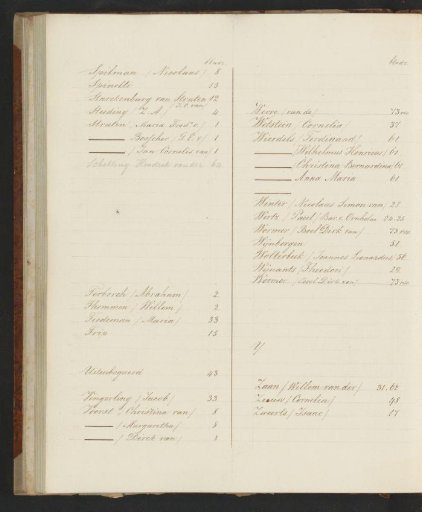 Spelman (Nicolaas) 8
Spinelle 13
Starckenburg van Straten 12
Steeding (Z. A) 4
Straten (Maria Fredca) 1
——— Bosscher (G. E. v) 1
——— (Jan Cornelis van) 1
Schelling Hendrik van der 60
Terborch (Abraham) 2
Themmen (Willem) 2
Tiedeman (Maria) 33
Trip 15
Uitenbogaerd 43
Vingerling (Jacob) 33
Voorst (Christina van) 8
——— (Margaretha) 8
——— (Dirck van) 1
Werve (van de) 73 vso
Wetstein (Cornelis) 37
Weerdels (Ferdinand) 61
——— Wilhelmus Henricus) 61
——— Christina Bernardina 61
——— Anna Maria 61
———
Winter (Nicolaas Simon van) 23
Wirtz (Paul) Bar. v. Ornholm 24. 25
Wormer (Boel Dirk van) 73 vso
Wijnbergen 51
Wolterbeek (Joannes Leonardus 56
Wijnants (Theodor) 29
Wormer (Boel Dirk van) 73 vso
Y
Zaan (Willem van der) 31. 62
Zeeuw (Cornelis) 48
Zweerts (Isaac) 17